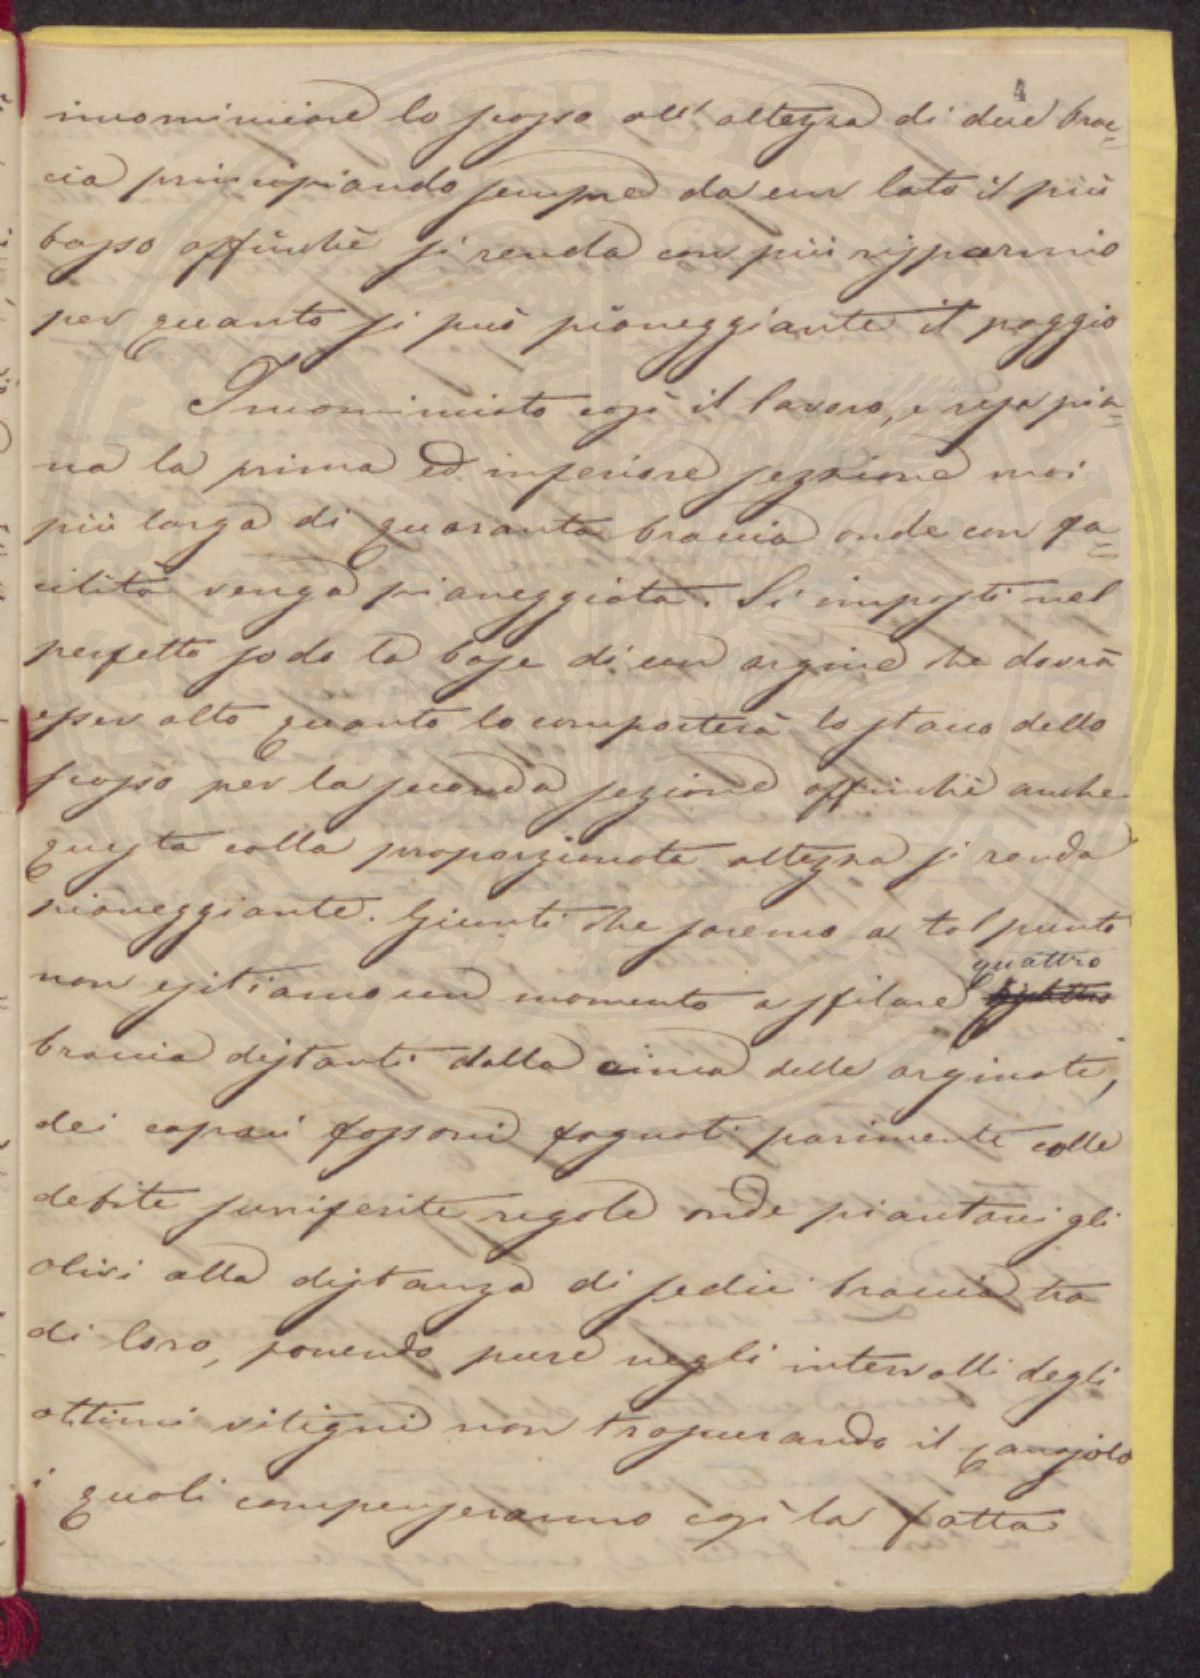 4
incominciare lo scasso all'altezza di due brac=
cia principiando sempre da un lato il più
basso affinchè si renda con più risparmio
per quanto si può pianeggiante il poggio
Incominciato così il lavoro, e resa pia=
na la prima ed inferiore sezzione mai
più larga di quaranta braccia onde con fa=
cilità venga pianeggiata. Si imposti nel
perfetto sodo la base di un argine che dovrà
esser alto quanto lo comporterà lo stacco dello
scasso per la seconda sezione affinchè anche
questa colla proporzionata altezza si renda
pianeggiante. Giunti che saremo a tal punto
quattro
non esitiamo un momento a sfilare
braccia distanti dalla cima delle arginate,
dei capaci fossoni fognati parimente colle
debite surriferite regole onde piantarci gli
olivi alla distanza di sedici braccia tra
di loro, ponendo pure negli intervalli degli
ottimi vitigni non trascurando il
i quali compenseranno così la fatta